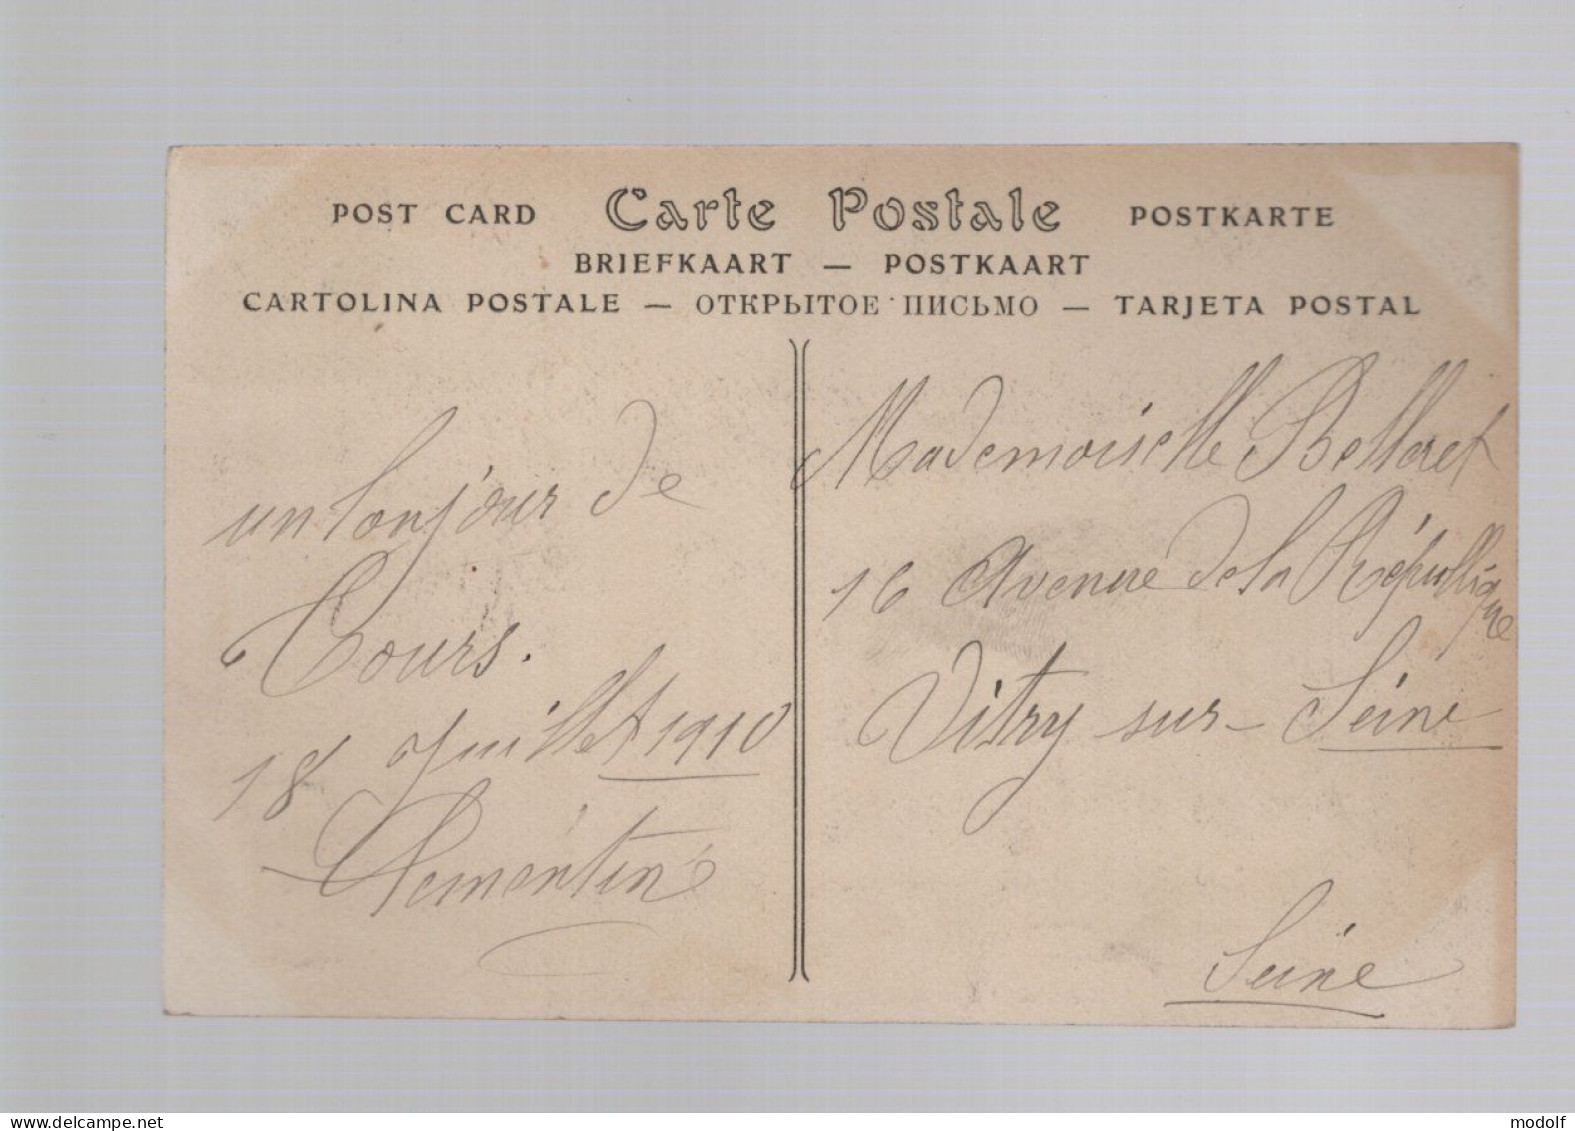 POST CARD Carte Postale POSTKARTE
BRIEFKAART — POSTKAART
CARTOLINA POSTALE — ОТКРЫТОЕ ПИСЬМО — TARJETA POSTAL
un bonjour de
Tours.
18 Juillet 1910
Clémentine
Mademoiselle Belloret
16 Avenue de la République
Vitry sur Seine
Seine
www.delcampe.net
modolf